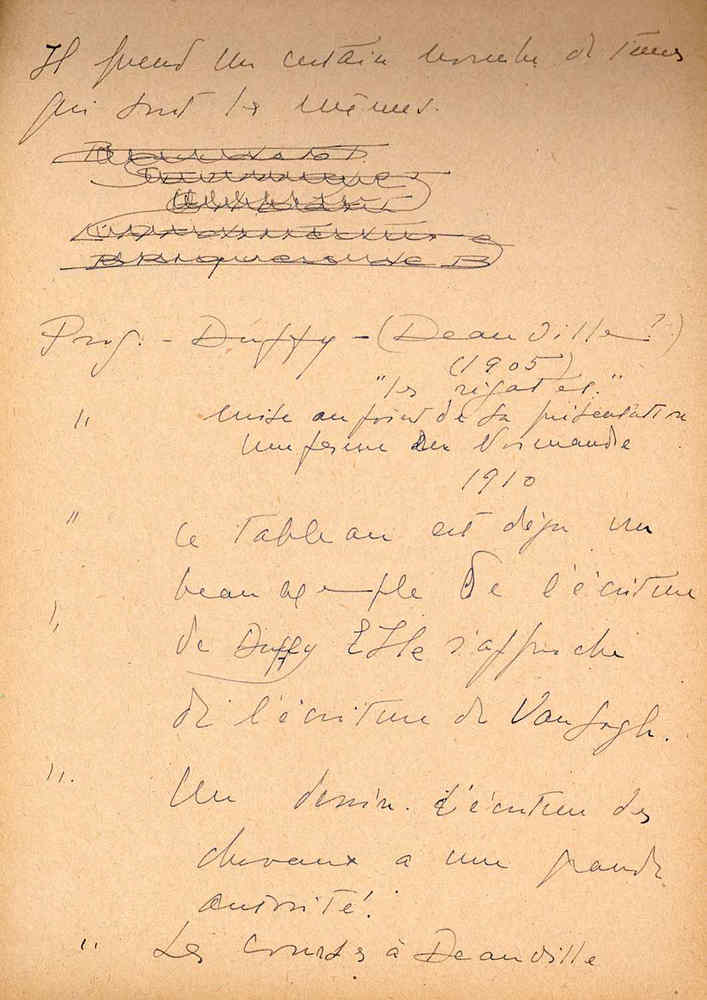 Il prend un certain nombre de tons
qui sont les mêmes.
Proj. - Duffy - (Deauville?)
(1905)
"les régates."
" mise au point de sa présentation
une ferme en Normandie
1910
" Ce tableau est déjà un
beau exemple de l'écriture
" de Duffy Elle s'approche
de l'écriture de Van Gogh.
". Un dessin. L'écriture des
chevaux a une grande
autorité.
" Les Courses à Deauville